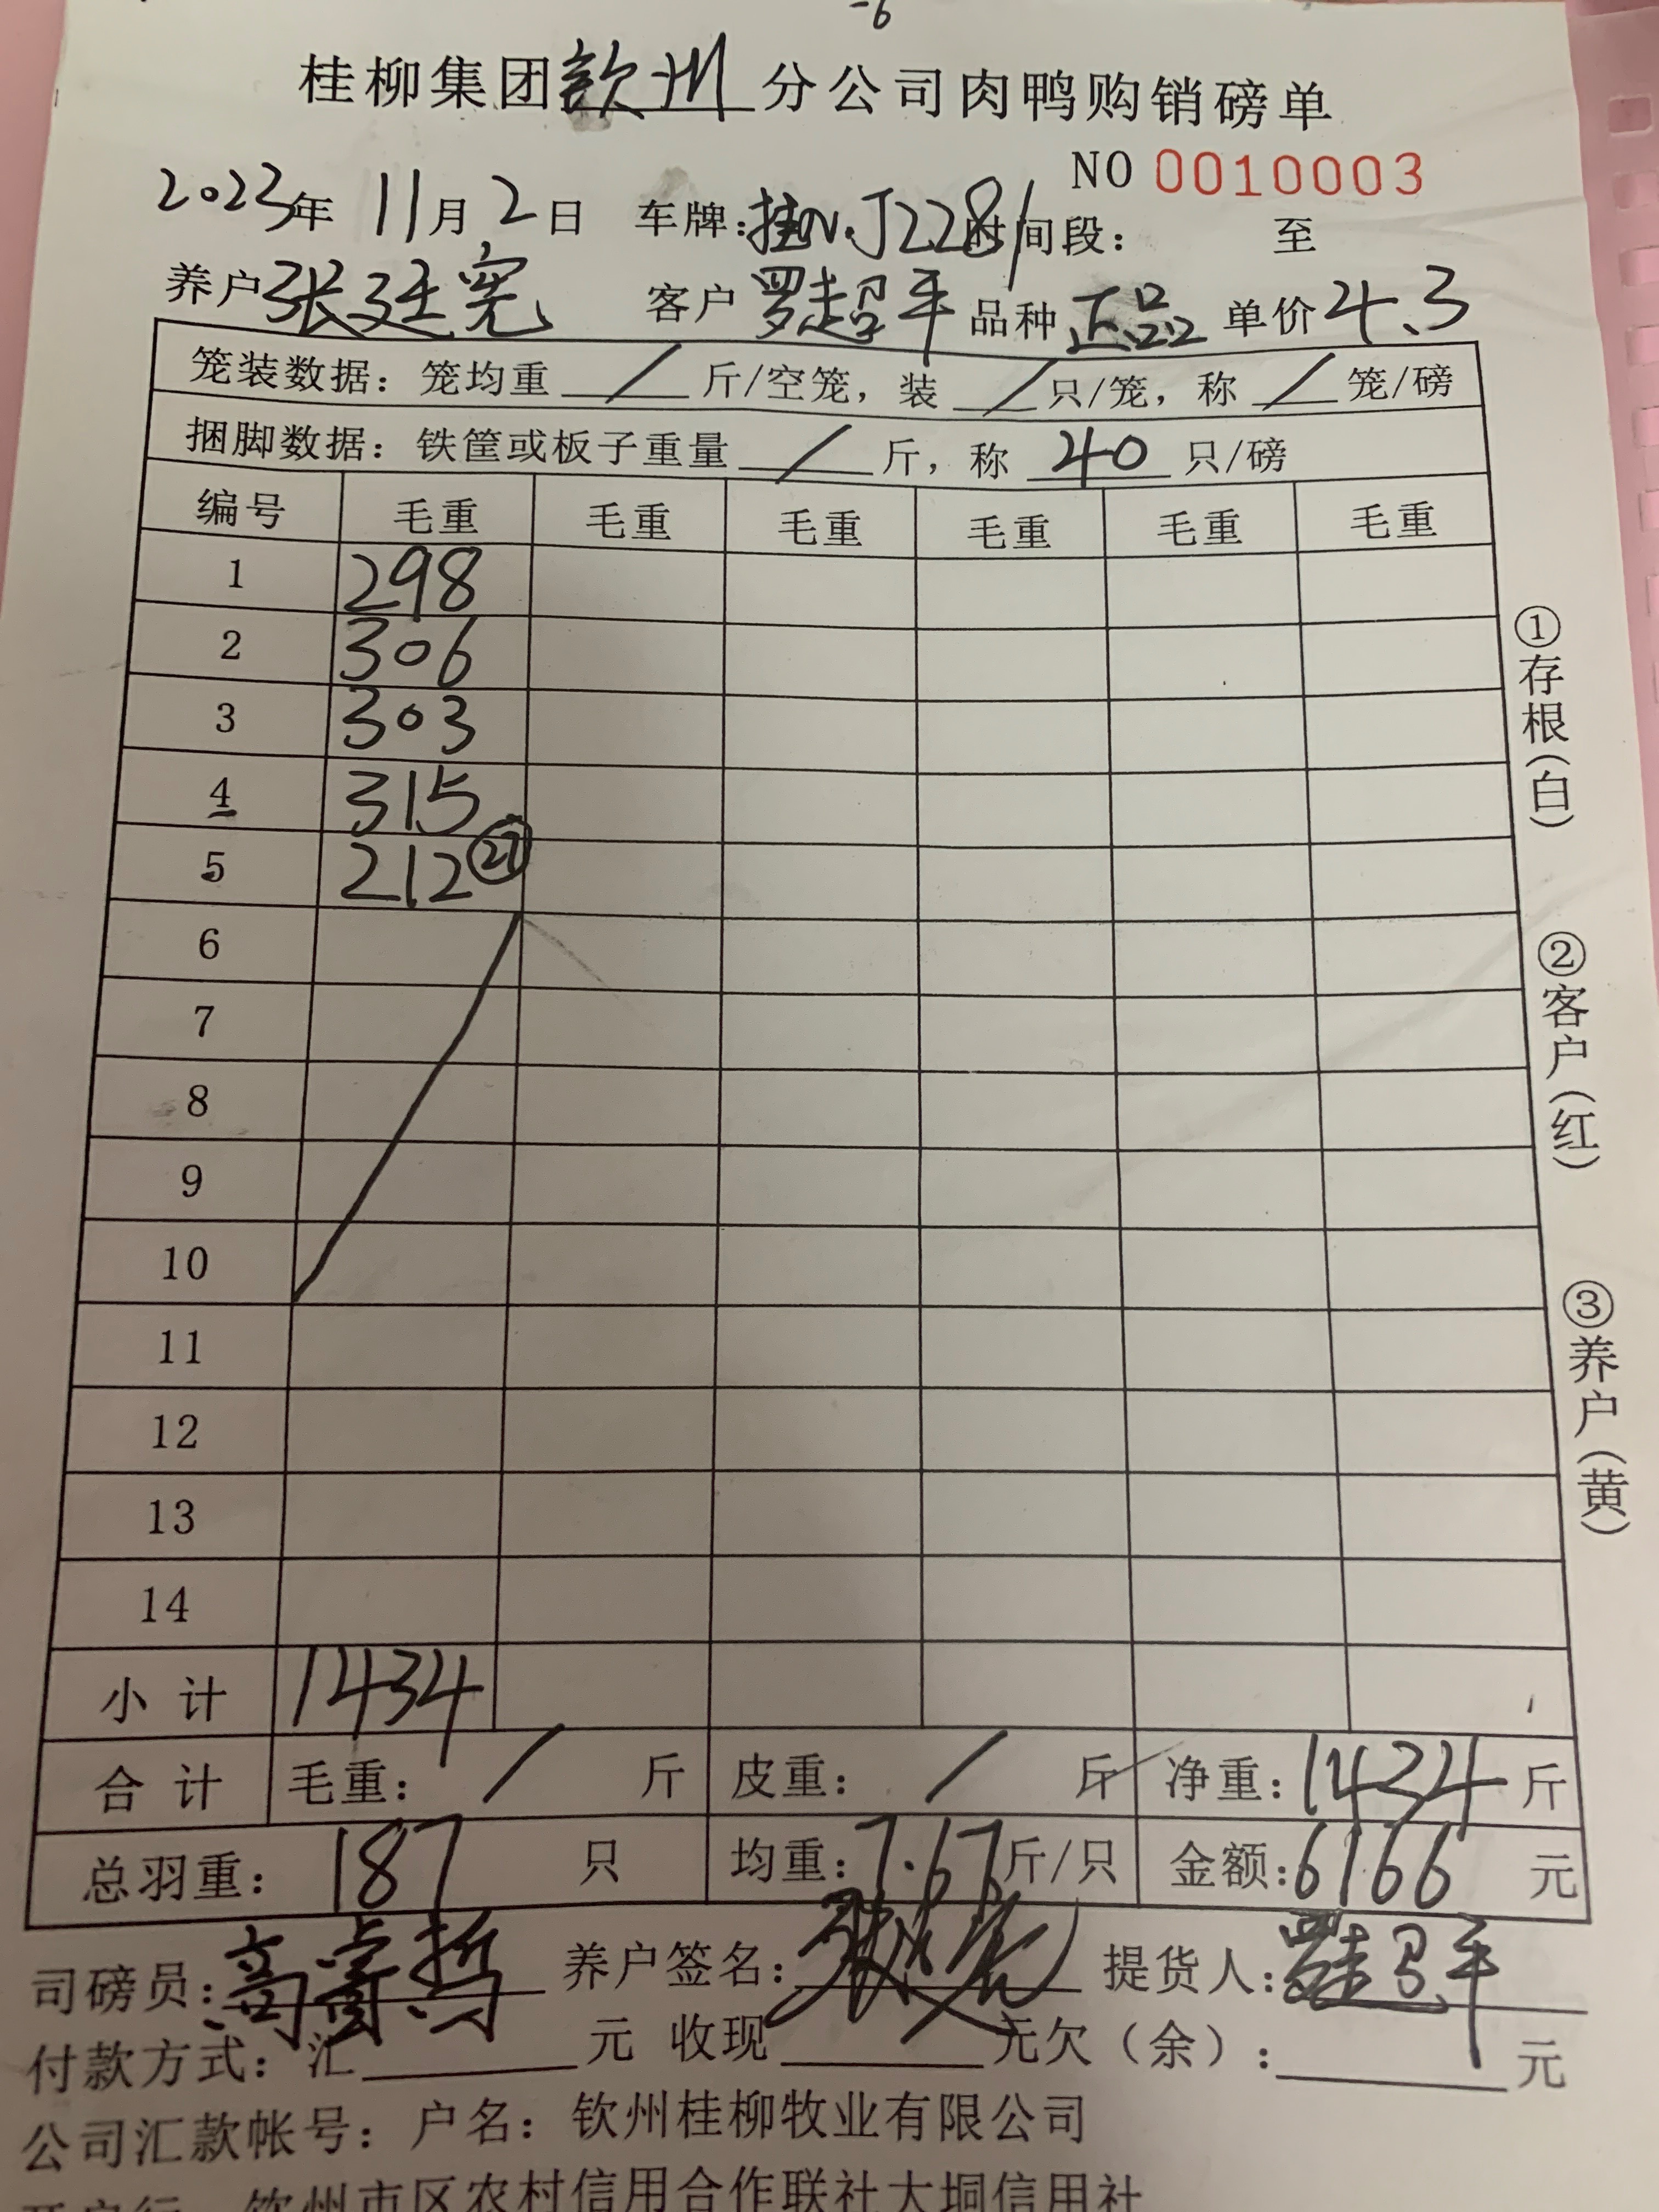 -6
桂柳集团钦州分公司肉鸭购销磅单
NO 0010003
2023年 11月 2日 车牌:桂N.J2281 时间段: 至
养户张廷宪 客户罗超平 品种正品 单价4.3
笼装数据:笼均重 / 斤/空笼,装 / 只/笼,称 / 笼/磅
捆脚数据:铁筐或板子重量 / 斤,称 40 只/磅
编号 毛重 毛重 毛重 毛重 毛重 毛重
1 298
2 306
3 303
4 315
5 212 ㉗
6
7
8
9
10
11
12
13
14
小计 1434
合计 毛重: / 斤 皮重: / 斤 净重:1434斤
总羽重: 187 只 均重:7.67斤/只 金额:6166元
司磅员:高 哲 养户签名: 提货人:罗超平
付款方式:汇 元 收现 元欠(余): 元
公司汇款帐号:户名:钦州桂柳牧业有限公司
开户行 钦州市区农村信用合作联社大垌信用社
①存根(白)
②客户(红)
③养户(黄)